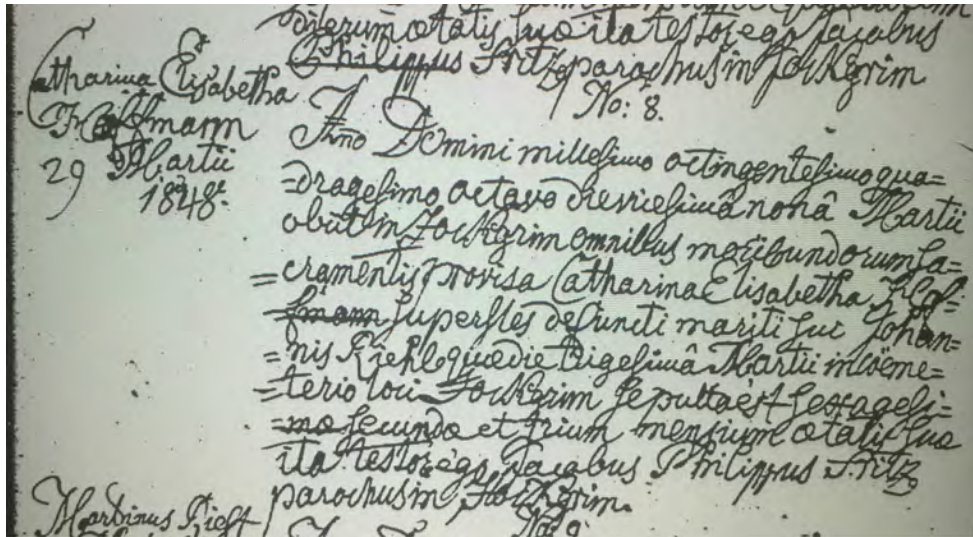 diterum ætatis suæ ita testor ego Jacobus
Philippus Fritz parochus in Jockgrim
No: 8.
Catharina Elisabetha
mann
29 Martii
1848.
Anno Domini millesimo octingentesimo qua=
=dragesimo octavo die vicesimâ nonâ Martii
obiit in Jockgrim omnibus moribundorum sa=
=cramentis provisa Catharina Elisabetha
=fmann superstes defuncti mariti sui Johan=
=nis Riehl quæ die trigesimâ Martii in cœme=
=terio loci Jockgrim sepulta est sexagesi=
=mo secundo et trium mensium ætatis suæ
ita testor ego Jacobus Philippus Fritz
parochus in Jockgrim.
Martinus
No: 9.